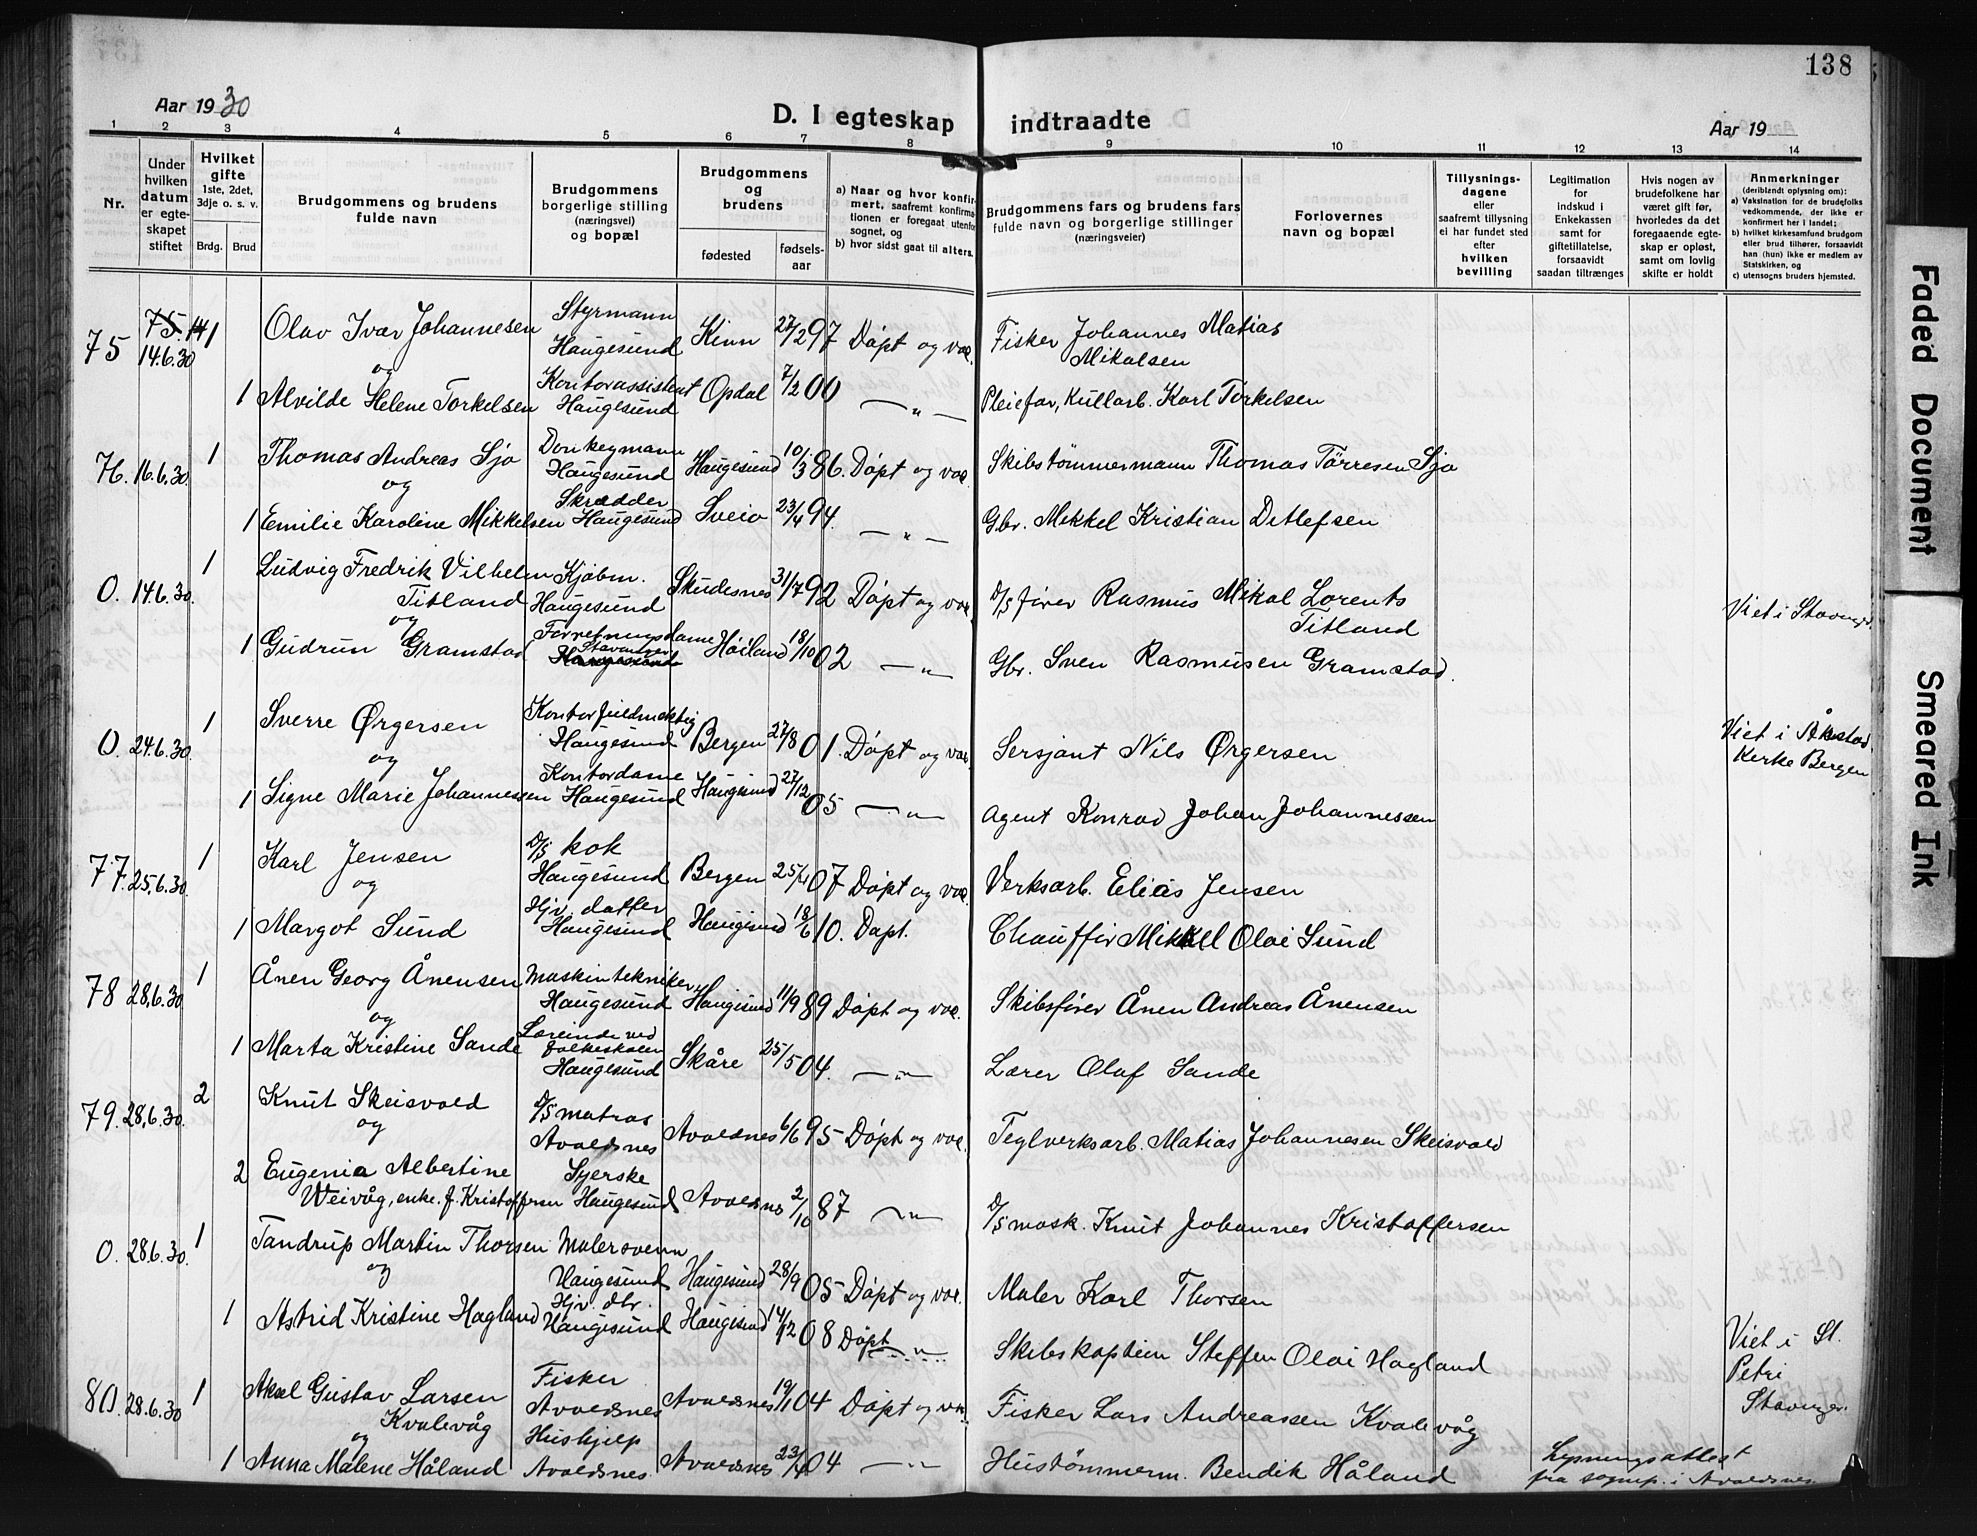 138
Aar 1930
D. I egteskap indtraadte
Aar 19
1 2 3 4 5 6 7 8 9 10 11 12 13 14
Nr.
Under hvilken datum er egte-skapet stiftet
Hvilket gifte
1ste, 2det, 3dje o. s. v.
Brdg. Brud
Brudgommens og brudens fulde navn
Brudgommens borgerlige stilling (næringsvei) og bopæl
Brudgommens og brudens
fødested
fødsels-aar
a) Naar og hvor konfir-mert, saafremt konfirma-tionen er foregaat utenfor sognet, og
b) hvor sidst gaat til alters.
Brudgommens fars og brudens fars fulde navn og borgerlige stillinger (næringsveier)
Forlovernes navn og bopæl
Tillysnings-dagene eller saafremt tillysning ei har fundet sted efter hvilken bevilling
Legitimation for indskud i Enkekassen samt for giftetillatelse, forsaavidt saadan tiltrænges
Hvis nogen av brudefolkene har været gift før, hvorledes da det foregaaende egte-skap er opløst, samt om lovlig skifte er holdt
Anmerkninger
(deriblandt oplysning om):
a) Vaksination for de brudefolks vedkommende, der ikke er konfirmert her i landet;
b) hvilket kirkesamfund brudgom eller brud tilhører, forsaavidt han (hun) ikke er medlem av Statskirken, og
c) utensogns bruders hjemsted.
75 14.6.30 1 Olav Ivar Johannesen Styrmann Haugesund Kinn 27/2 97 Døpt og vac. Fisker Johannes Matias Mikalsen
og
1 Alvilde Helene Torkelsen Kontorassistent Haugesund Opdal 7/2 00 — " — Pleiefar, Kullarb. Karl Torkelsen
76. 16.6.30. 1 Thomas Andreas Sjo Donkeymann Haugesund Haugesund 10/3 86. Døpt og vac. Skibstømmermann Thomas Tørresen Sjo
og
1 Emilie Karoline Mikkelsen Skrædder Haugesund Sveio 23/4 94. — " — Gbr. Mikkel Kristian Detlefsen
0. 14.6.30. 1 Ludvig Fredrik Vilhelm Titland Kjøbm. Haugesund Skudesnes 31/7 92 Døpt og vac. D/S fører Rasmus Mikal Lorents Titland Viet i Stavanger
og
1 Gudrun Gramstad Forretningsdame Stavanger Høiland 18/10 02 — " Gbr. Sven Rasmusen Gramstad.
0. 24.6.30. 1 Sverre Ørgersen Kontorfuldmektig Haugesund Bergen 27/8 01. Døpt og vac. Sersjant Nils Ørgersen Viet i Årstad Kirke Bergen
og
1 Signe Marie Johannessen Kontordame Haugesund Haugesund 27/12 05 — " — Agent Konrad Johan Johannessen
77. 25.6.30. 1 Karl Jensen D/S kok Haugesund Bergen 25/4 07 Døpt og vac. Verksarb. Elias Jensen
og
1 Margot Sund Hjv. datter Haugesund Haugesund 18/6 10. Døpt. Chauffør Mikkel Olai Sund
78 28.6.30 1 Ånen Georg Ånensen Maskintekniker Haugesund Haugesund 11/9 89 Døpt og vac. Skibsfører Ånen Andreas Ånensen
og
1 Marta Kristine Sande Lærerinde ved folkeskolen Haugesund Skåre 25/5 04. — " — Lærer Olaf Sande
79. 28.6.30. 2 Knut Skeisvold D/S matros Avaldsnes Avaldsnes 6/6 95 Døpt og vac. Teglverksarb. Matias Johannesen Skeisvold
og
2 Eugenia Albertine Weivåg, enke. f. Kristoffersen Syerske Haugesund Avaldsnes 2/10 87 — " — D/S mask. Knut Johannes Kristoffersen
0. 28.6.30. 1 Tandrup Martin Thorsen Malersvenn Haugesund Haugesund 28/9 05 Døpt og vac. Maler Karl Thorsen
og
1 Astrid Kristine Hagland Hjv. dtr. Haugesund Haugesund 14/12 08 Døpt — " — Skibskaptein Steffen Olai Hagland Viet i St. Petri Stavanger.
80. 28.6.30 1 Aksel Gustav Larsen Kvalevåg Fisker Avaldsnes Avaldsnes 19/1 04 Døpt og vac. Fisker Lars Andreassen Kvalevåg
og
1 Anna Malene Håland Hushjelp Avaldsnes. Avaldsnes 23/4 04 — " — Hustømmerm. Bendik Håland Lysningsattest fra sognep. i Avaldsnes
Faded Document
Smeared Ink